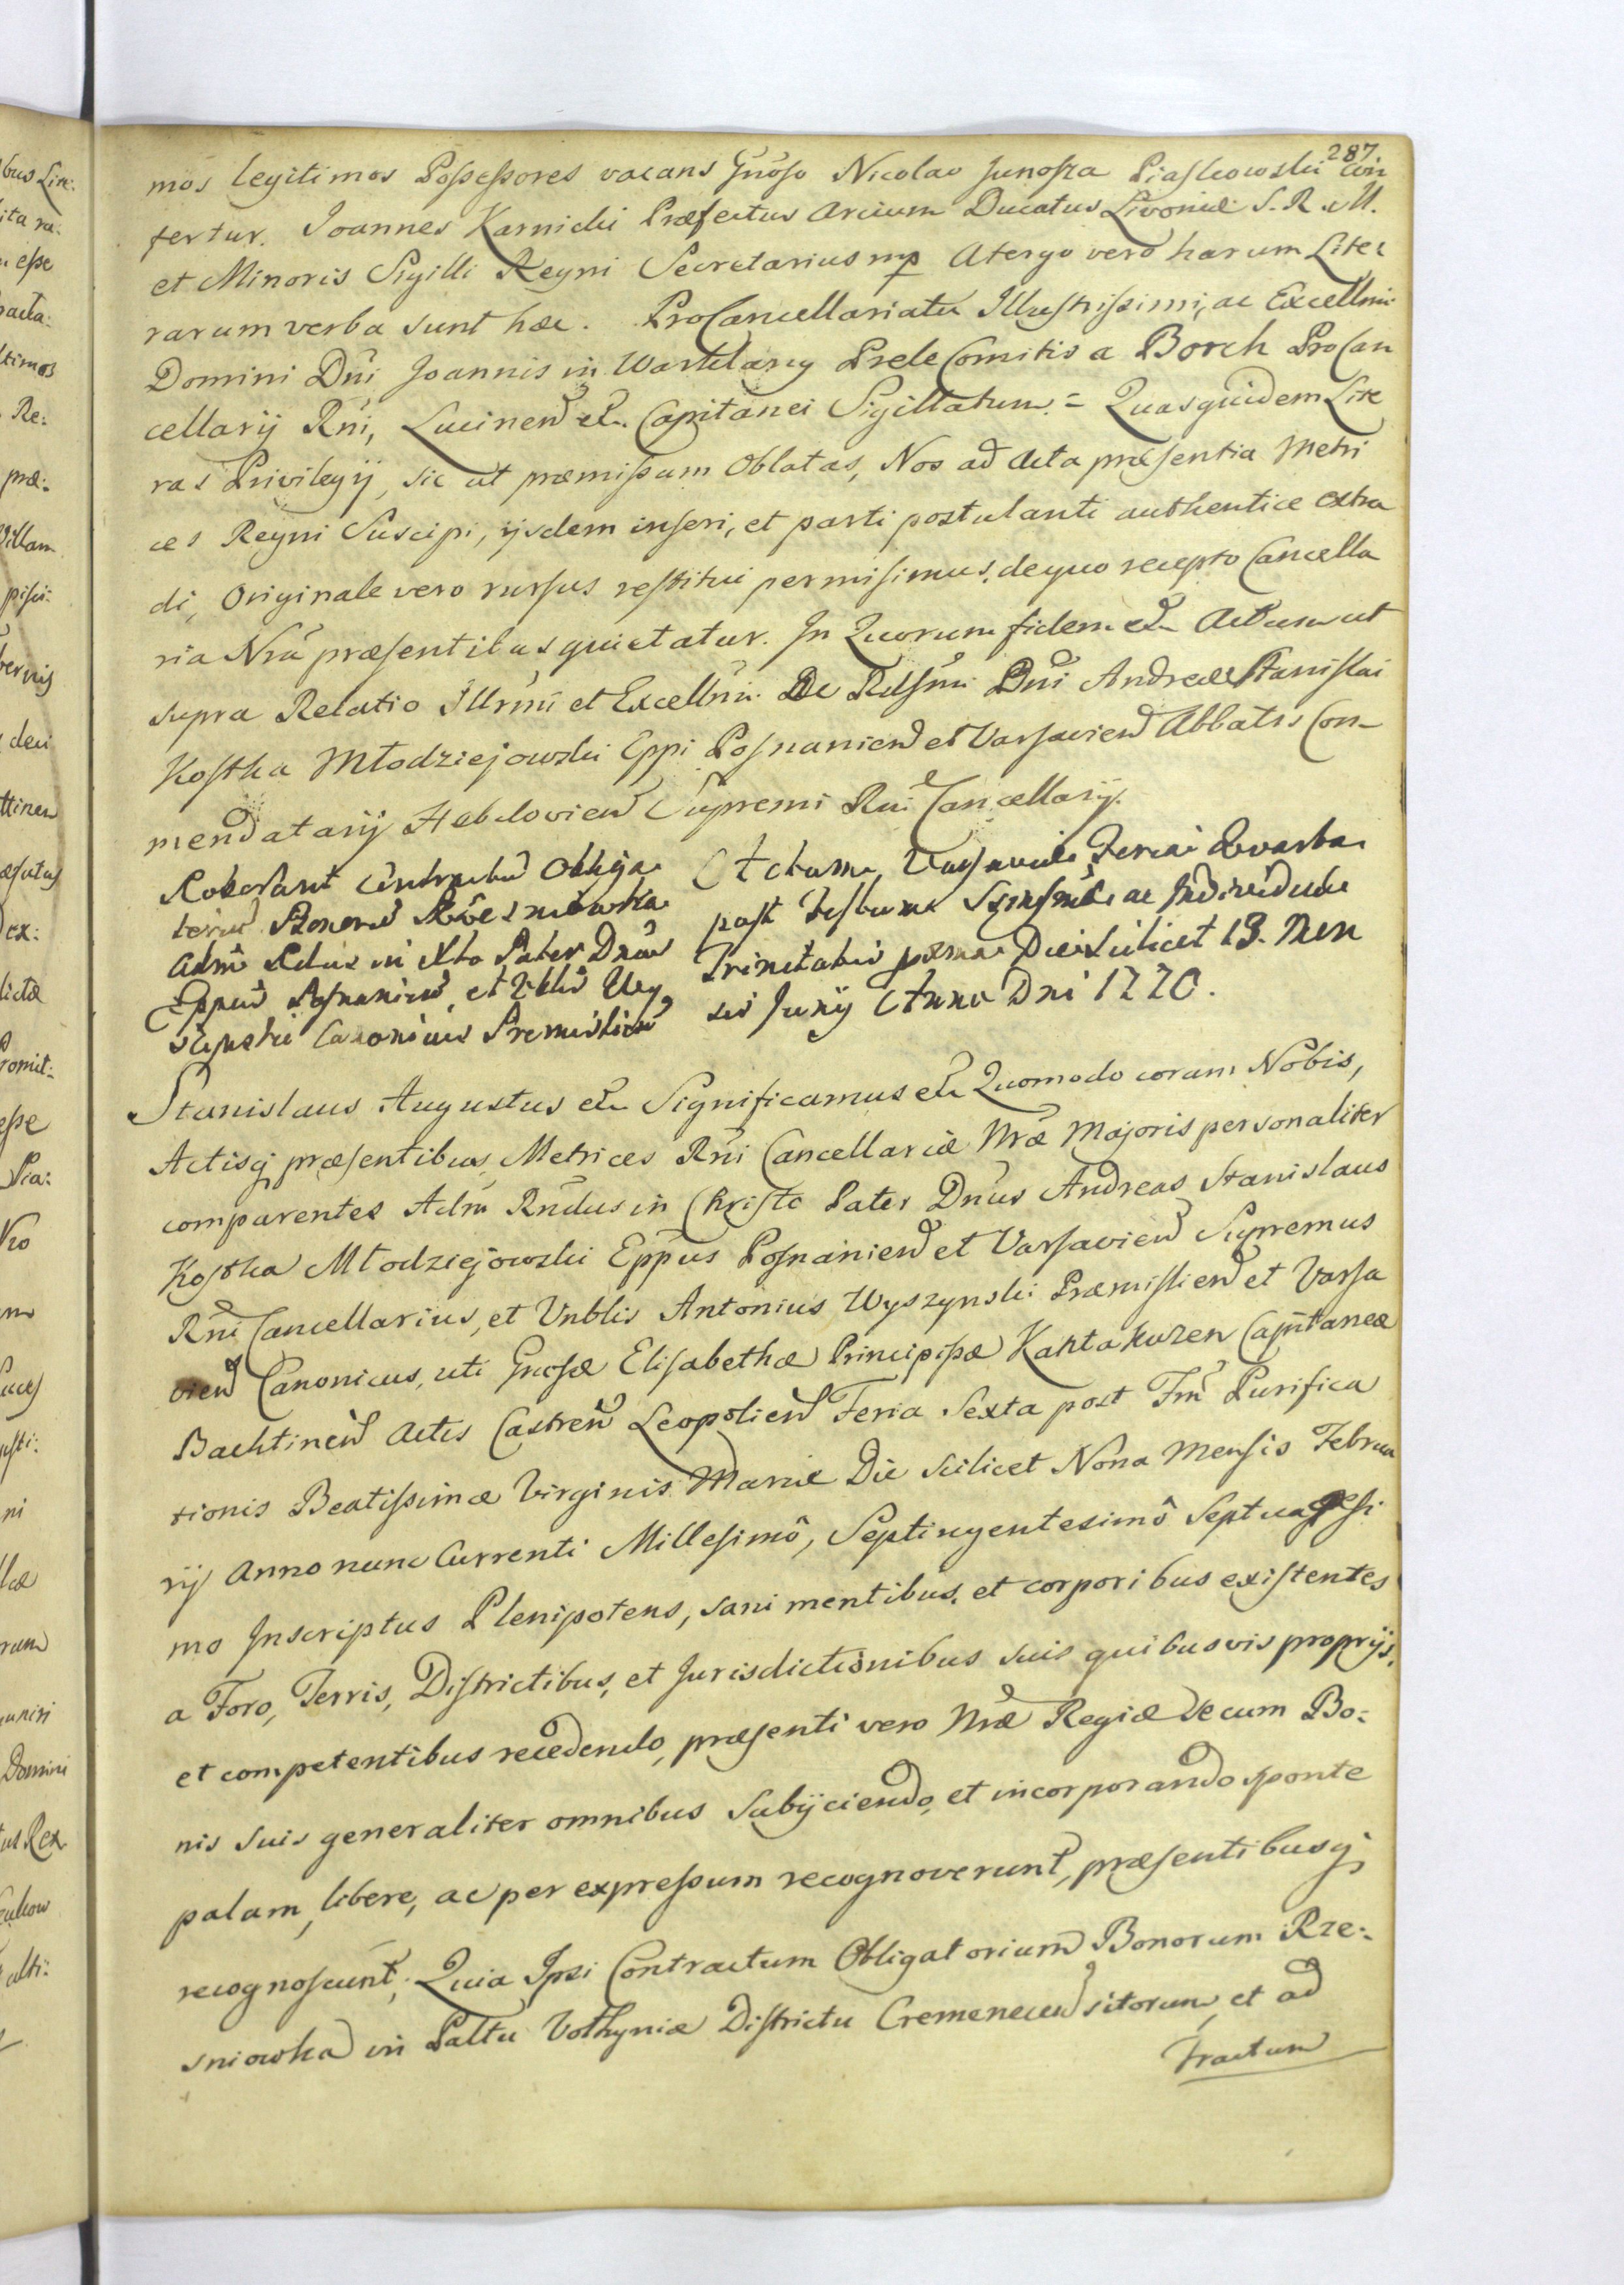 287
mos legitimos Possessores vacans Gnoso Nicolao Junosza Piaskowski con
fertur. Joannes Karnicki Præfectus Arcium Ducatus Livoniæ S. R. M.
et Minoris Sigilli Regni Secretarius mp Atergo vero harum Lite
rarum verba sunt hæc. ProCancellariatu Illustrissimi, ac Excellmi
Domini Dni Joannis in Warkland Prele Comitis a Borch ProCan
cellarij Rni, Lucinen etc. Capitanei Sigillatum. = Quasquidem Lite
ras Privilegij, sic ut præmissum Oblatas, Nos ad Acta præsentia Metri
ces Regni Suscipi, ijsdem inseri, et parti postulanti authentice extra
di, Originale vero rursus restitui permisimus, dequo recepto Cancella
ria Nra præsentibus quietatur. In Quorum fidem etc. Actum ut
supra Relatio Illrmi et Excellmi Dni Andreæ Stanislai
Kostka Młodziejowski Eppi Posnanien et Varsavien Abbatis Com-
mendatarij Hebdovien Supremi Rni Cancellarij.
Roborant Contractum Obliga
torium Bonorum Rześniowka
Adm Rdus in Xto Pater Dnus
Eppus Posnanien, et Vblis Wy
szynski Canonicus Premislien
Actum Varsaviæ Feria Quarta
post Festum Szinsmæ ac Individuæ
Trinitatis proxima Die scilicet 13. Men
sis Junij Anno Dni 1770.
Stanislaus Augustus etc. Significamus etc. Quomodo coram Nobis,
Actisq præsentibus Metrices Rni Cancellariæ Nræ Majoris personaliter
comparentes Adm Rndus in Christo Pater Dnus Andreas Stanislaus
Kostka Młodziejowski Eppus Posnanien et Varsavien Supremus
Rni Cancellarius, et Vnblis Antonius Wyszynski Præmislien et Varsa
vien Canonicus, uti Gnosæ Elisabethæ Principissæ Kantakuzen Capitaneæ
Bachtinen Actis Castren Leopolien Feria Sexta post Fm Purifica
tionis Beatissimæ Virginis Mariæ Die scilicet Nona Mensis Februa
rij Anno nunc Currenti Millesimô, Septingentesimô Septuagesi
mo Inscriptus Plenipotens, sani mentibus, et corporibus existentes
a Foro, Terris, Districtibus, et Jurisdictionibus suis quibusvis proprijs,
et competentibus recedendo, præsenti vero Nræ Regiæ se cum Bo-
nis suis generaliter omnibus Subijciendo, et incorporando sponte
palam, libere, ac per expressum recognoverunt, præsentibusq
recognoscunt; Quia Ipsi Contractum Obligatorium Bonorum Rze-
sniowka in Pallu Volhyniæ Districtu Cremenecen sitorum, et ad
tractum